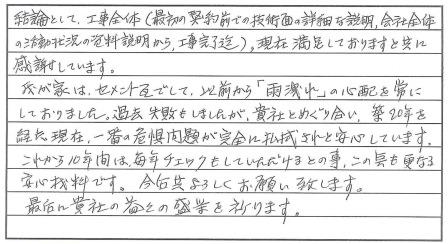 結論として、工事全体(最初の契約前での技術面の詳細な説明、会社全体
の活動状況の資料説明から、工事完了迄)、現在満足しておりますと共に
感謝しています。
我が家は、セメント瓦でして、以前から「雨漏れ」の心配を常に
しておりました。過去失敗もしましたが、貴社とめぐり合い、築20年を
経た現在、一番の危惧問題が完全に払拭されと安心しています。
これから10年間は、毎年チェックもしていただけるとの事、この気も更なる
安心材料です。今后共よろしくお願い致します。
最后に貴社の益々の盛業を祈ります。